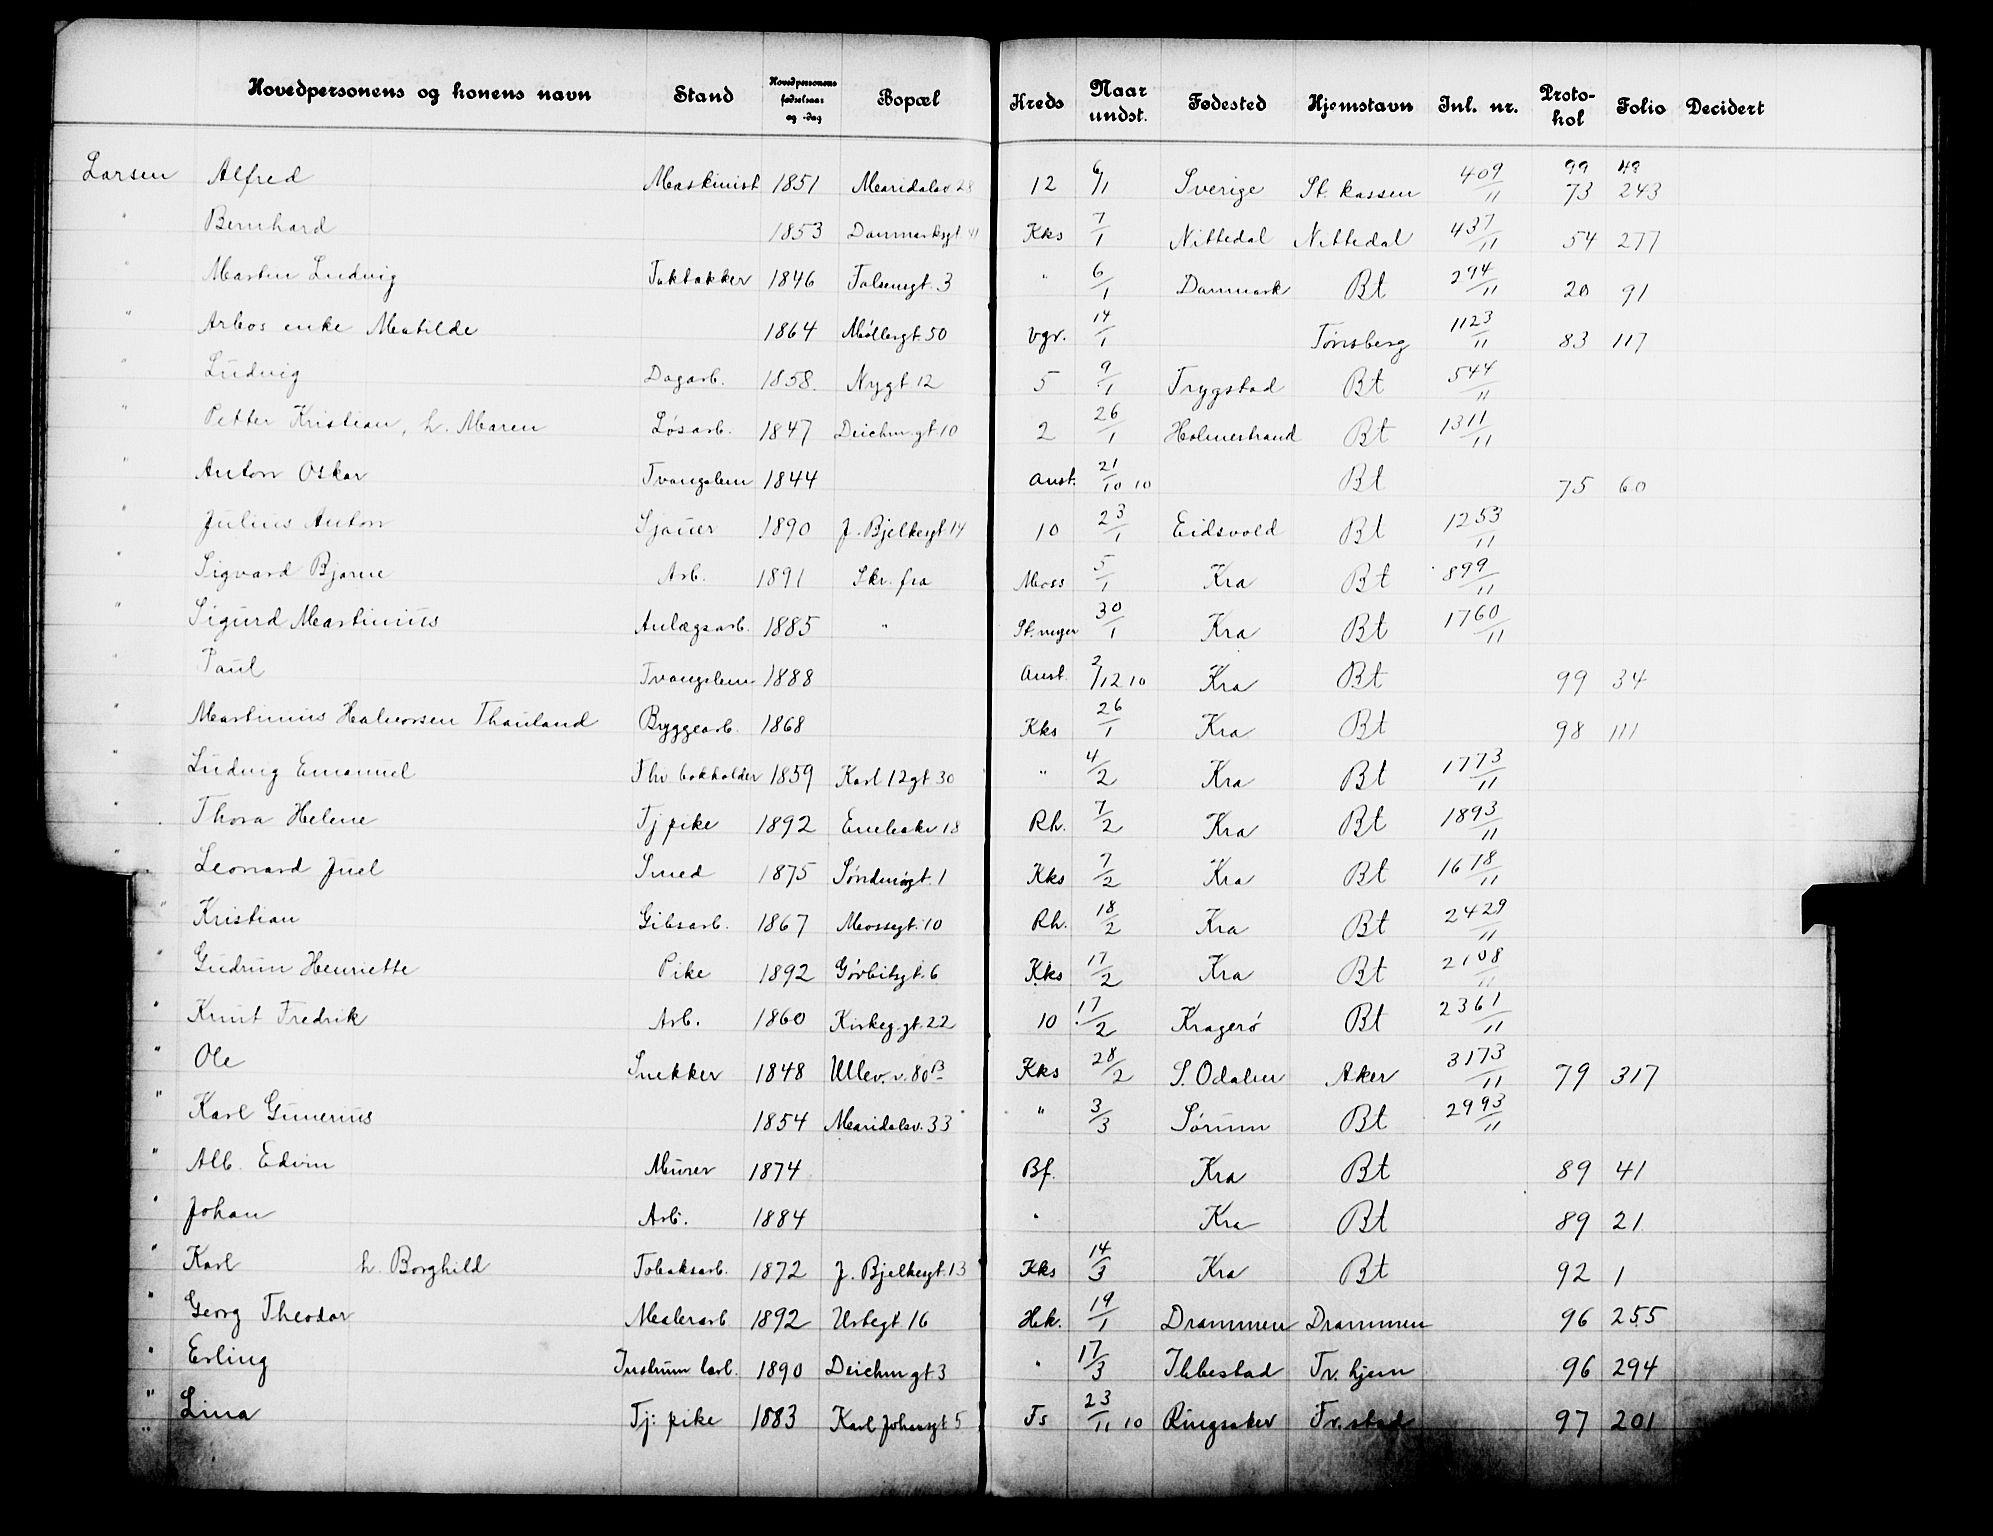 Hovedpersonens og konens navn Stand Hovedpersonens fødselsaar og -dag Bopæl Kreds Naar undst. Fødested Hjemstavn Inl. nr. Protokol Folio Decidert
Larsen Alfred Maskinist 1851 Maridalsv 28 12 6/1 Sverige St. kassen 409/11 99 49
73 243
" Bernhard 1853 Danmarksgt 41 Kks 7/1 Nittedal Nittedal 437/11 54 277
" Martin Ludvig Taktækker 1846 Falsensgt. 3 " 6/1 Danmark Bt 294/11 20 91
" Arbos enke Matilde 1864 Møllergt 50 Vgr. 14/1 Tønsberg 1123/11 83 117
" Ludvig Dagarb. 1858. Nygt 12 5 9/1 Trygstad Bt 544/11
" Petter Kristian, h. Maren Løsarb. 1847 Deichm.gt 10 2 26/1 Holmestrand Bt 1311/11
" Anton Oskar Tvangslem 1844 Anst. 21/10 10 Bt 75 60
" Julius Anton Sjauer 1890 J. Bjelkesgt 14 10 23/1 Eidsvold Bt 1253/11
" Sigvard Bjarne Arb. 1891 Skr. fra Moss 5/1 Kra Bt 899/11
" Sigurd Martinius Anlægsarb. 1885 " 30/1 Kra Bt 1760/11
" Paul Tvangslem 1888 Anst. 2/12 10 Kra Bt 99 34
" Martinius Halvorsen Thauland Byggearb. 1868 Kks 26/1 Kra Bt 98 111
" Ludvig Emanuel Fhv bokholder 1859 Karl 12 gt 30 " 4/2 Kra Bt 1773/11
" Thora Helene Tj pike 1892 Enebakv 18 Rh. 7/2 Kra Bt 1893/11
" Leonard Juel Smed 1875 Søndmørgt. 1 Kks 7/2 Kra Bt 1678/11
" Kristian Gibsarb. 1867 Mossegt. 10 Rh. 18/2 Kra Bt 2429/11
" Gudrun Henriette Pike 1892 Gørbitsgt. 6 Kks 17/2 Kra Bt 2108/11
" Knut Fredrik Arb. 1860 Kirkeg.gt. 22 10 17/2 Kragerø Bt 2361/11
" Ole Snekker 1848 Ullev. v. 80 B Kks 28/2 S. Odalen Aker 3173/11 79 317
" Karl Gunerius 1854 Maridalsv. 33 " 3/3 Sørum Bt 2993/11
" Alb. Edvin Murer 1874 Bf. Kra Bt 89 41
" Johan Arb. 1884 " Kra Bt 89 21
" Karl h. Borghild Tobaksarb. 1872 J. Bjelkesgt. 13 Kks 14/3 Kra Bt 92 1
" Georg Theodor Malerarb 1892 Urtegt. 16 Hek. 19/1 Drammen Drammen 96 255
" Erling Instrum arb. 1890 Deichm gt 3 " 17/3 Ibbestad Tr. hjem 96 294
" Lina Tj: pike 1883 Karl Johansgt 5 Fs 23/11 10 Ringsaker Fr.stad 97 201